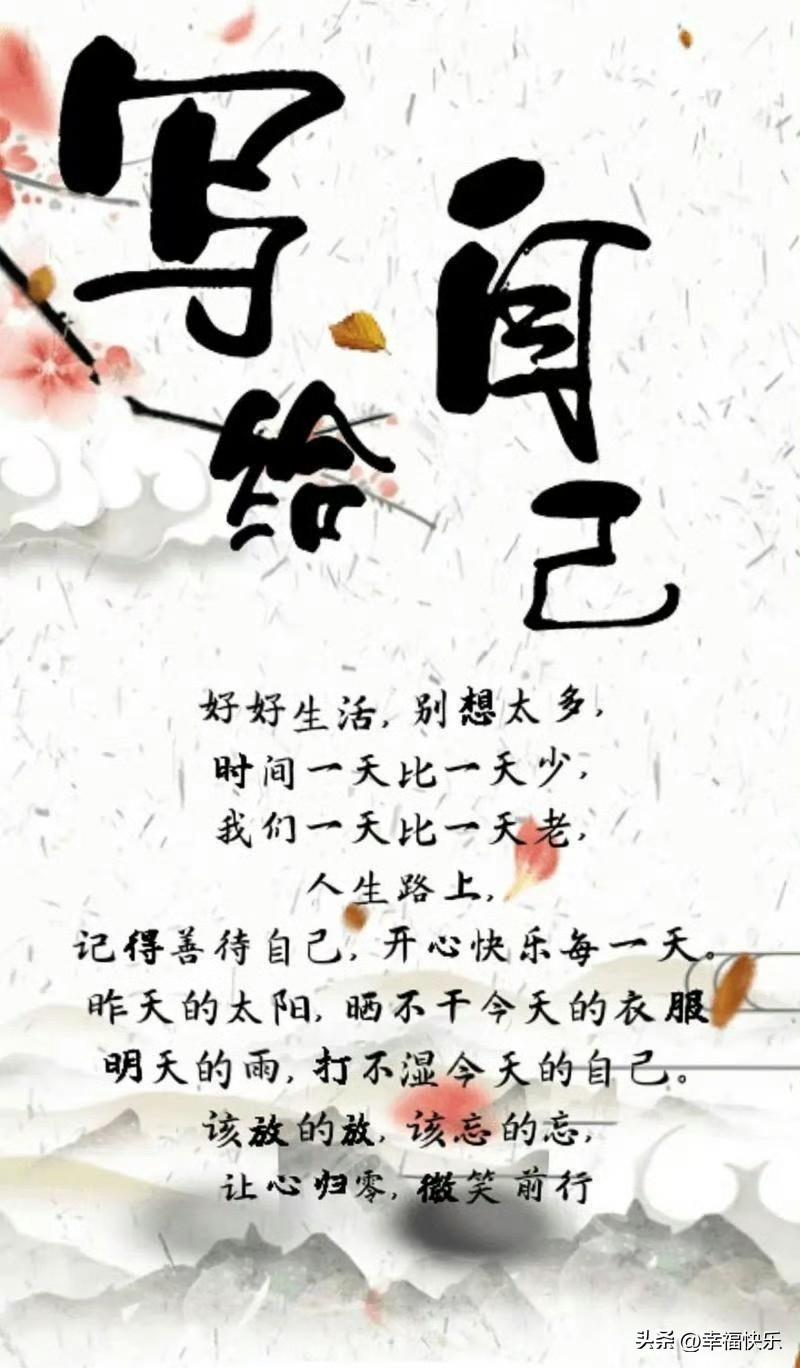 写给
自己
好好生活，别想太多，
时间一天比一天少，
我们一天比一天老，
人生路上，
记得善待自己，开心快乐每一天。
昨天的太阳，晒不干今天的衣服
明天的雨，打不湿今天的自己。
该放的放，该忘的忘，
让心归零，微笑前行
头条 @幸福快乐